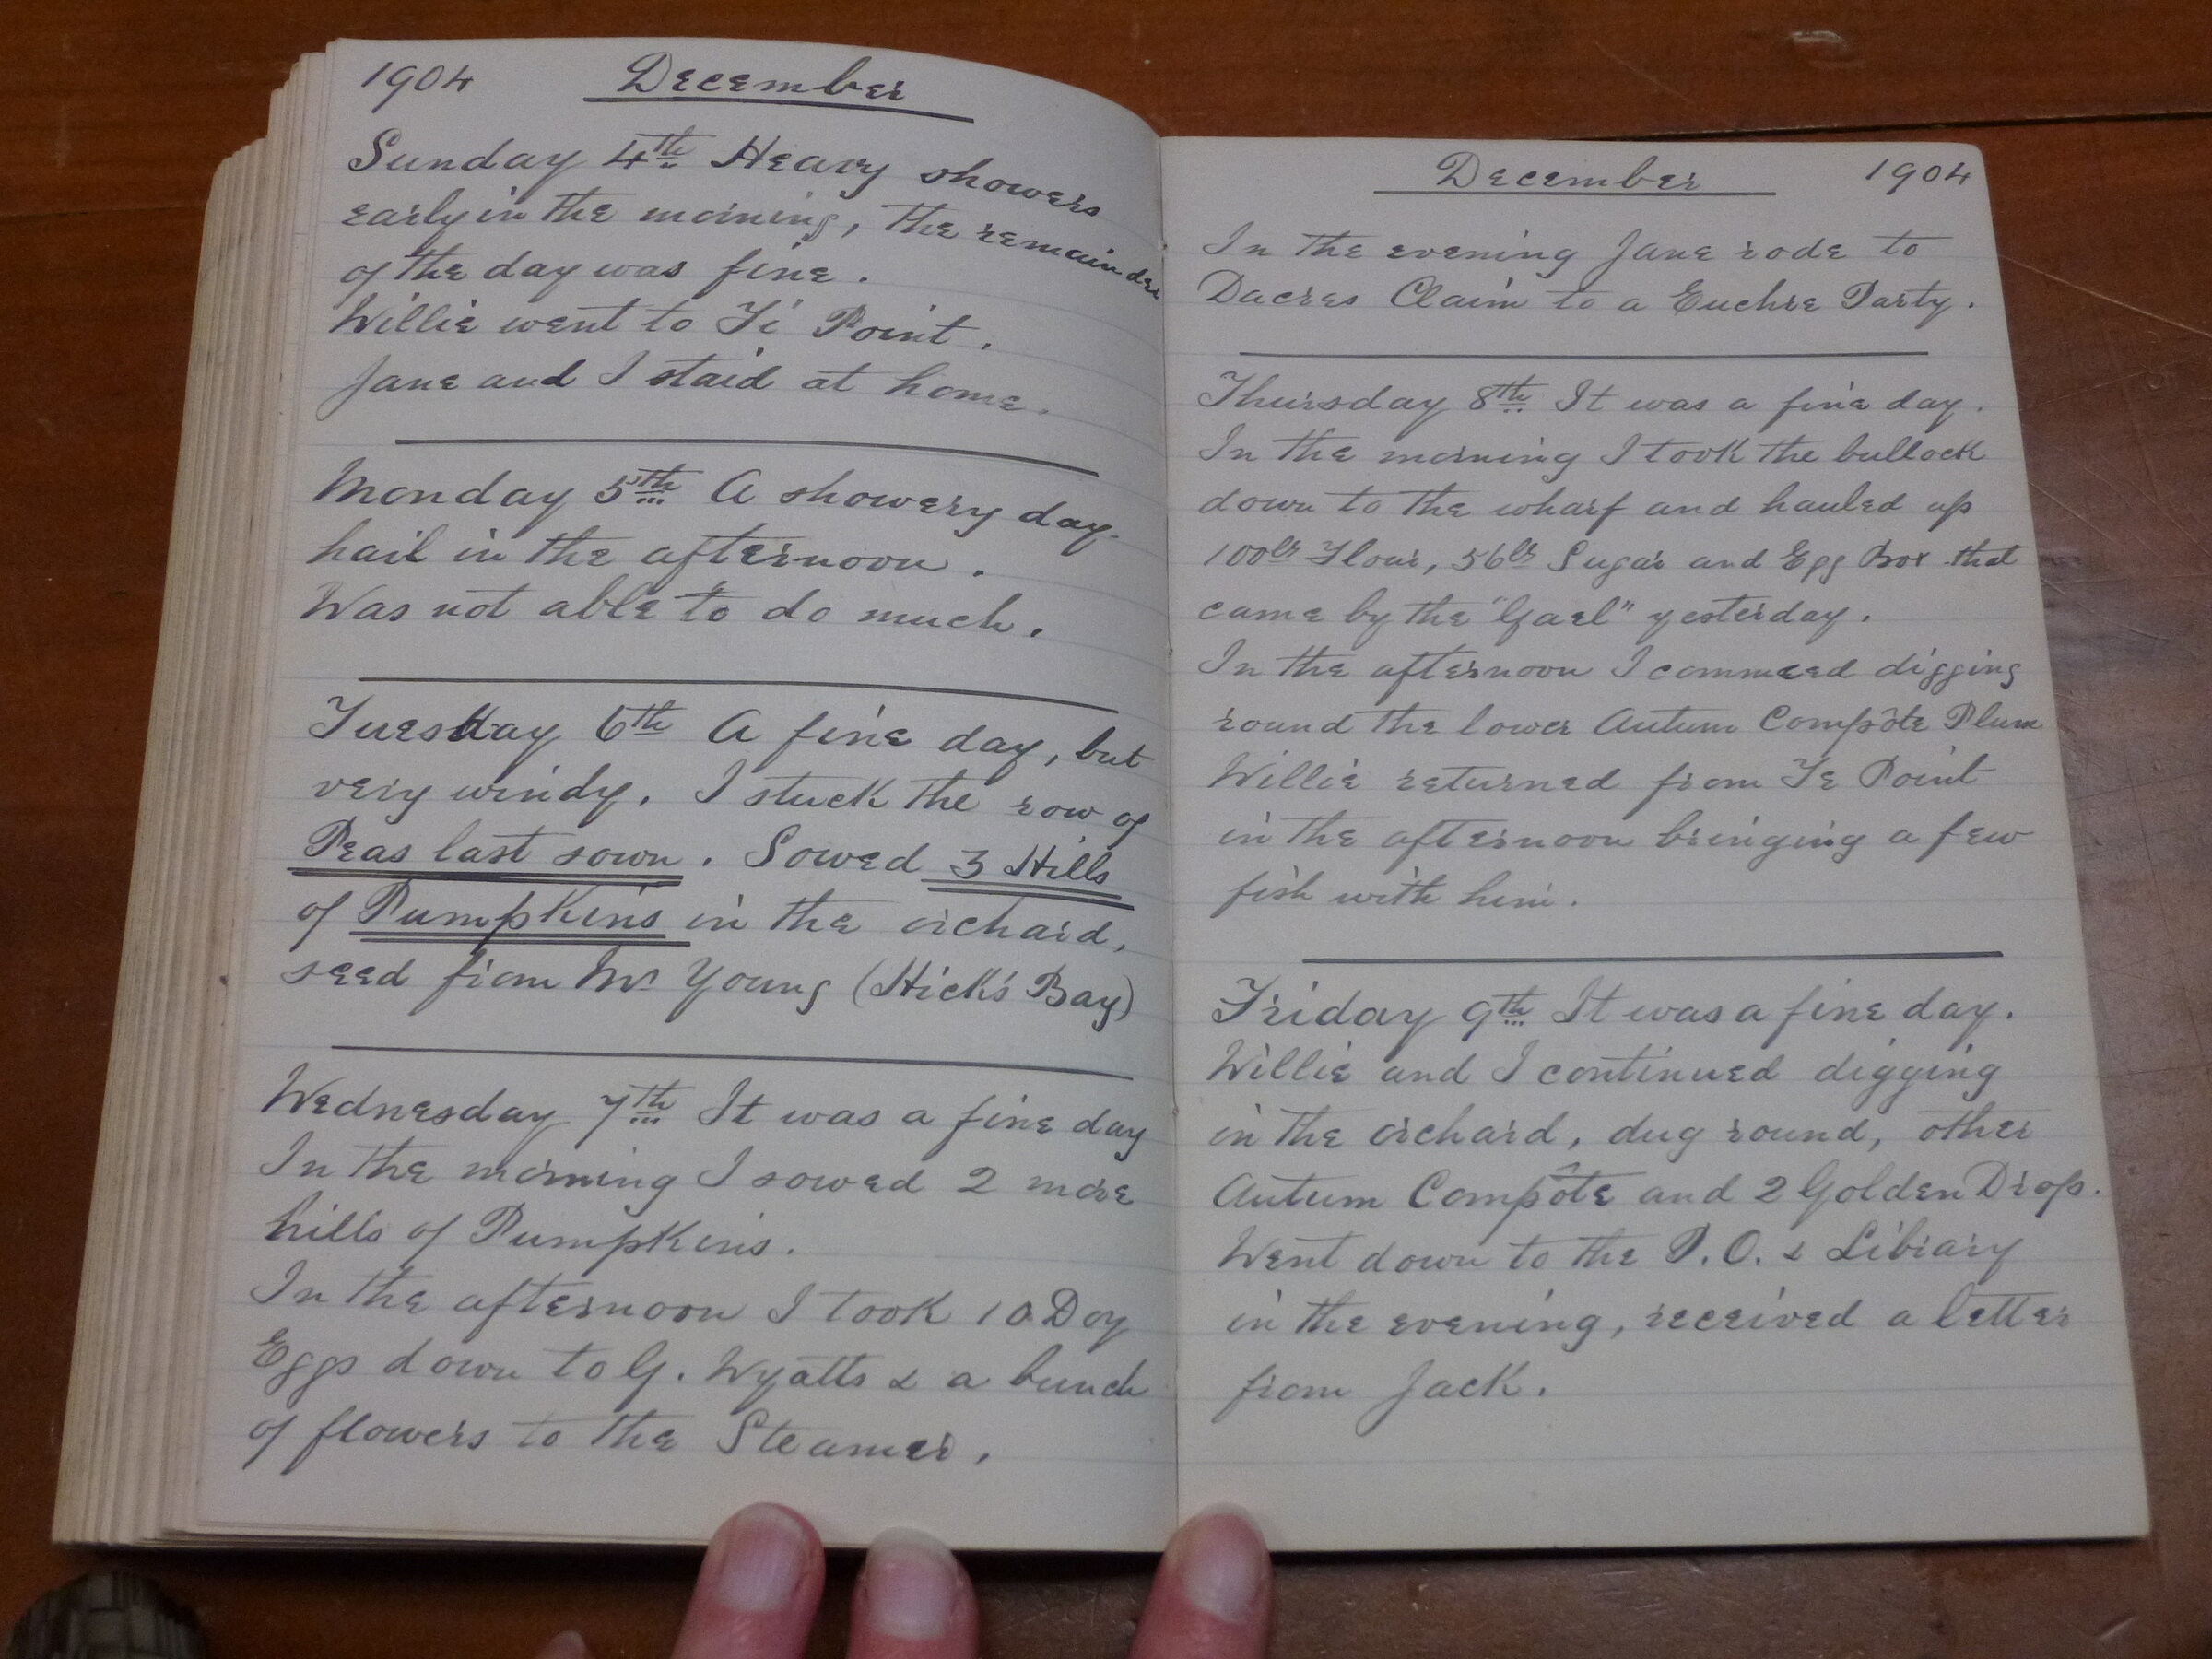 1904 December
Sunday 4th Heavy showers
early in the morning, the remainder
of the day was fine.
Willie went to Ti Point.
Jane and I staid at home.
Monday 5th A showery day.
hail in the afternoon.
Was not able to do much.
Tuesday 6th A fine day, but
very windy. I stuck the row of
Peas last sown. Sowed 3 Hills
of Pumpkins in the orchard,
seed from Mr Young (Hick's Bay)
Wednesday 7th It was a fine day
In the morning I sowed 2 more
hills of Pumpkins.
In the afternoon I took 10 Doz
Eggs down to G. Wyatts & a bunch
of flowers to the Steamer.
December 1904
In the evening Jane rode to
Dacres Claim to a Euchre Party.
Thursday 8th It was a fine day.
In the morning I took the bullock
down to the wharf and hauled up
100lb Flour, 56lb Sugar and Egg Box that
came by the "Gael" yesterday.
In the afternoon I commeed digging
round the lower Autum Compôte Plum
Willie returned from Te Point
in the afternoon bringing a few
fish with him.
Friday 9th It was a fine day.
Willie and I continued digging
in the orchard, dug round, other
Autum Compôte and 2 Golden Drops.
Went down to the P.O. & Library
in the evening, received a letter
from Jack.